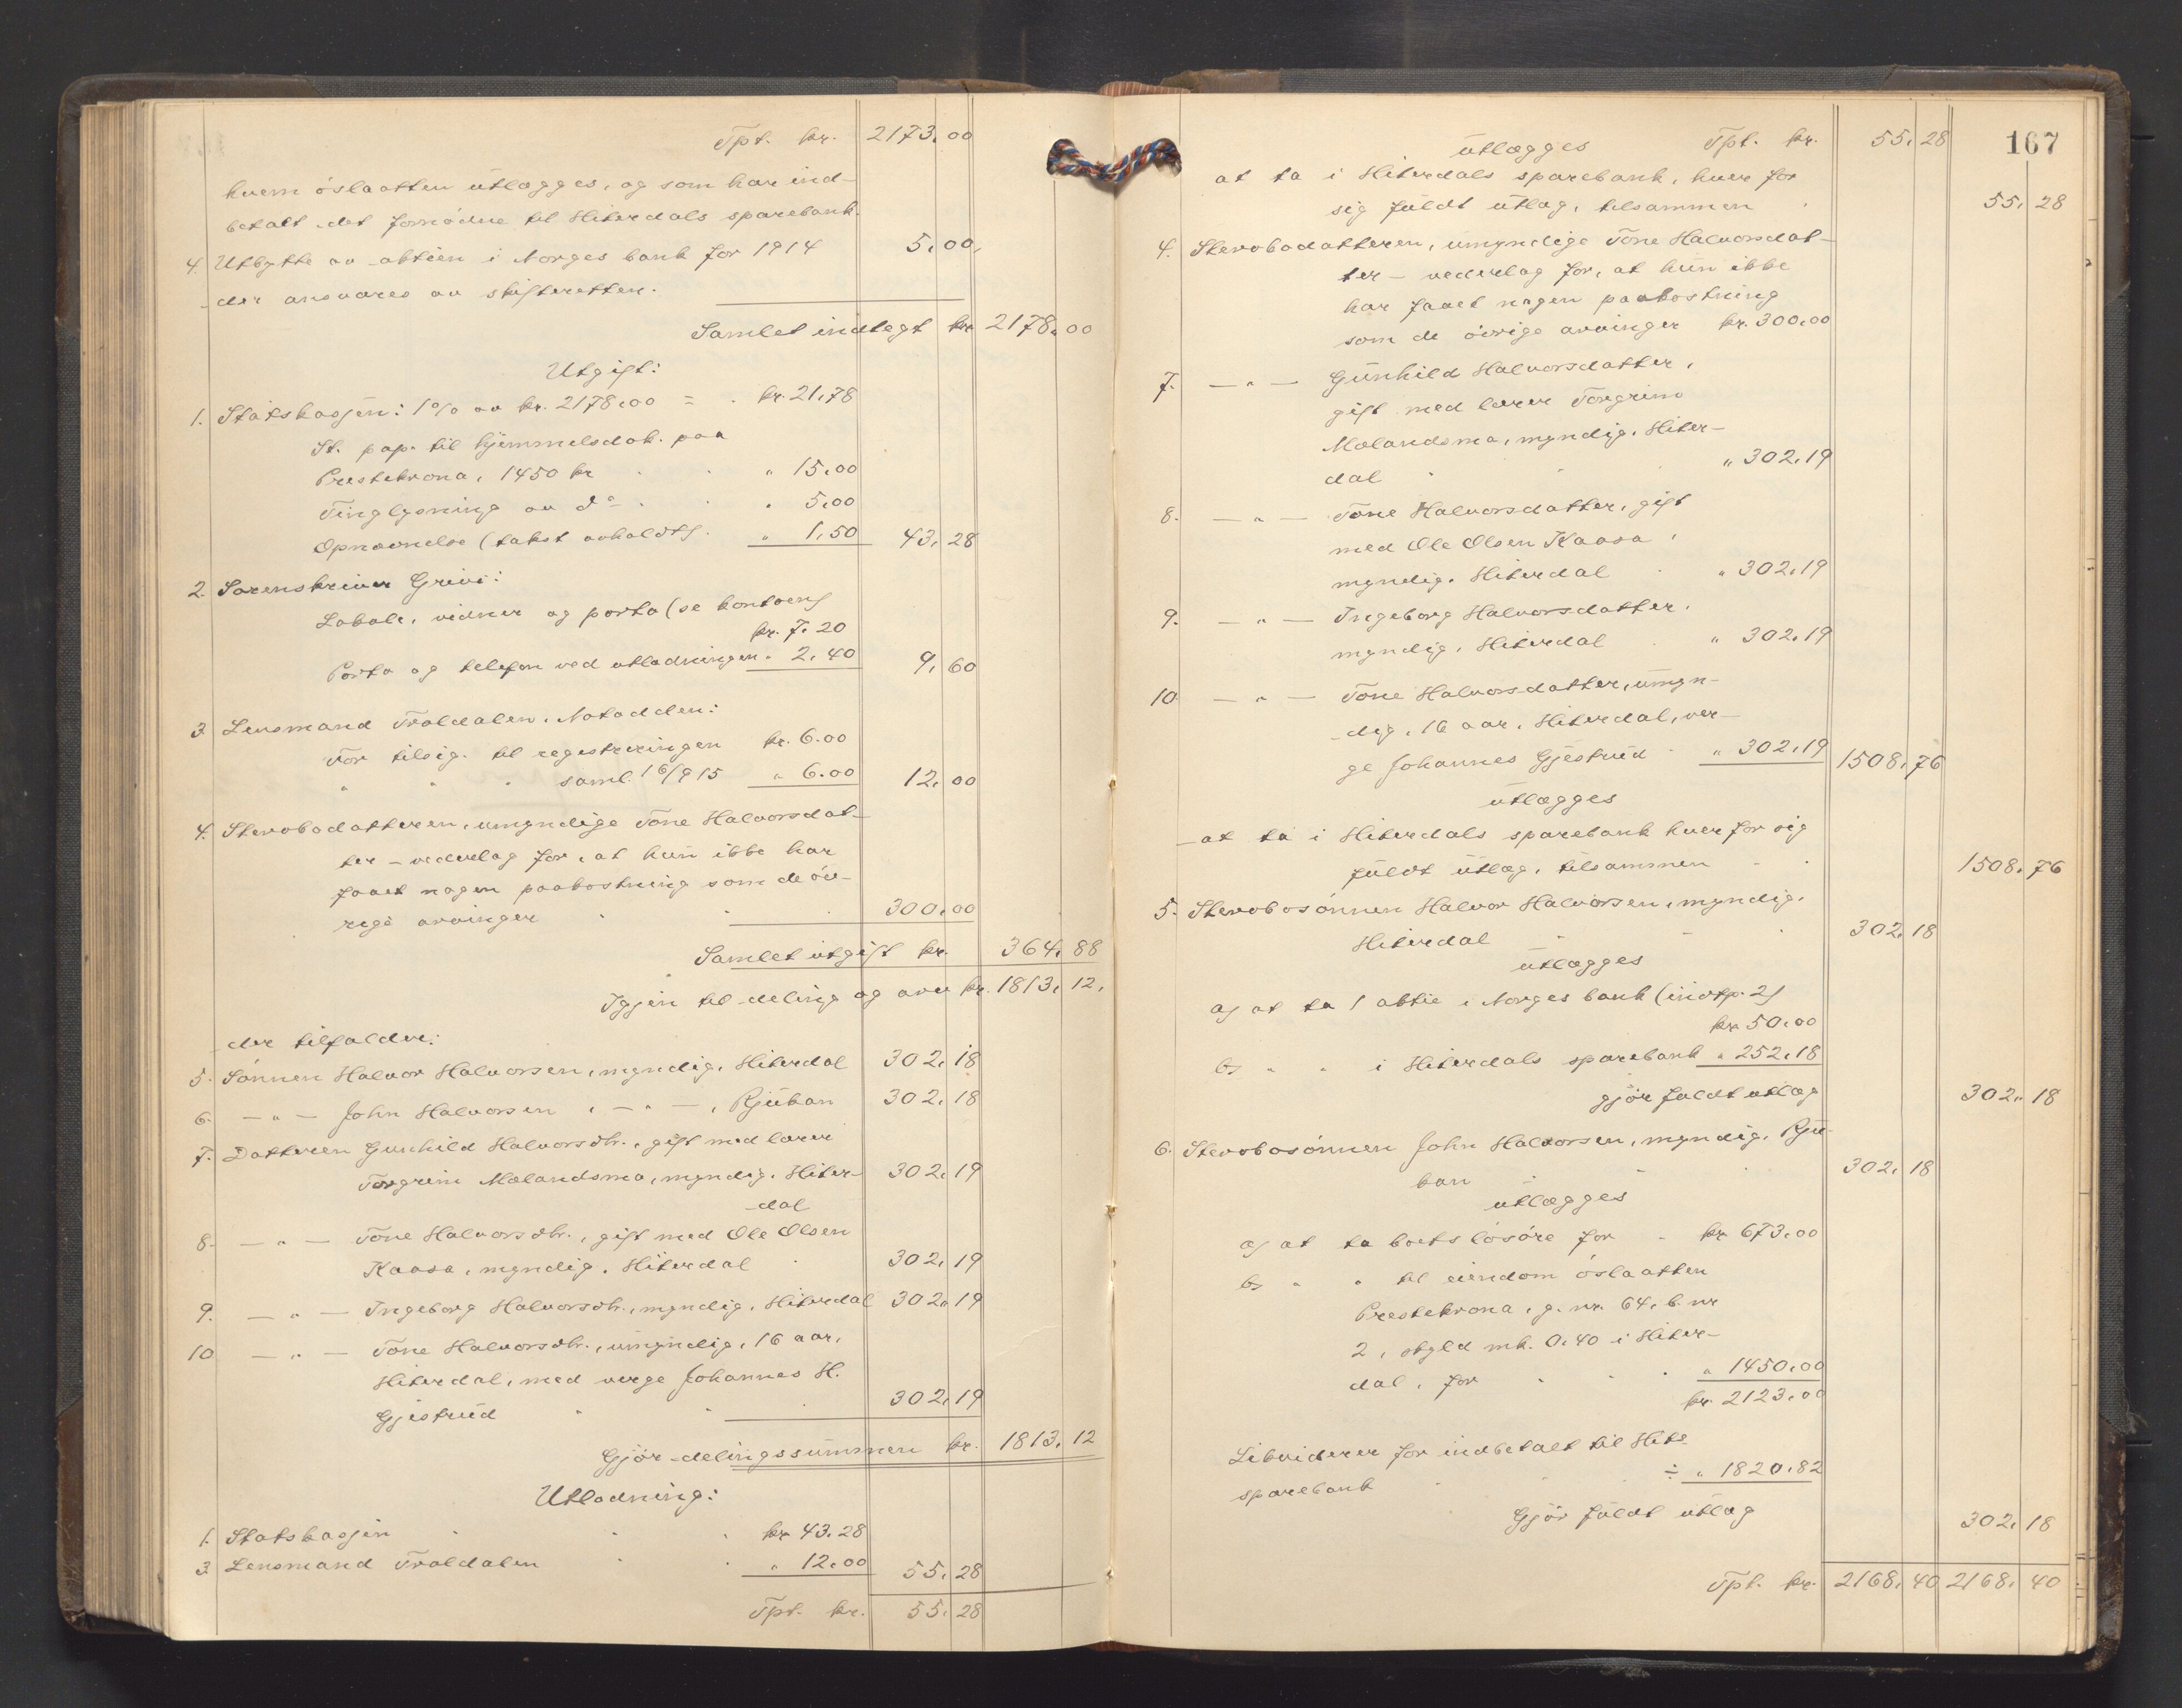 Tpt. kr. 2173,00
hvem øslaatten utlægges, og som har ind-
betalt det fornødne til Hiterdals sparebank.
4. Utbytte av aktien i Norges bank for 1914 5,00,
der ansvares av skifteretten.
Samlet indtegt kr 2178,00
Utgift:
1. Statskassen: 1% av kr. 2178,00 = kr. 21,78
St. pap. til hjemmelsdok. paa
Prestekrona, 1450 kr " 15,00
Tinglysning av do " 5,00
Opnævnelse (takst avholdt) " 1,50 43,28
2. Sorenskriver Grivi:
Lokale, vidner og porto (se kontoen)
kr. 7,20
Porto og telefon ved utlodningen " 2,40 9,60
3 Lensmand Troldalen, Notodden:
For tilsig. til registreringen kr. 6.00
" " " saml. 16/9 15 " 6.00 12,00
4. Stervbodatteren, umyndige Tone Halvorsdat-
ter – vederlag for, at hun ikke har
faaet nogen paakostning som de øv-
rige arvinger 300,00
Samlet utgift kr. 364,88
Igjen til deling og arv kr. 1813,12,
der tilfalder:
5. Sønnen Halvor Halvorsen, myndig, Hiterdal 302,18
6. – " – John Halvorsen, – " –, Rjukan 302,18
7. Datteren Gunhild Halvorsdtr., gift med lærer
Torgrim Mælandsmo, myndig, Hiter- 302,19
dal
8. – " – Tone Halvorsdtr., gift med Ole Olsen
Kaasa, myndig, Hiterdal 302,19
9. – " – Ingeborg Halvorsdtr., myndig, Hiterdal 302,19
10 – " – Tone Halvorsdtr., umyndig, 16 aar,
Hiterdal, med verge Johannes H.
Gjestrud 302,19
Gjør delingssummen kr. 1813,12
Utlodning:
1. Statskassen kr 43.28
3. Lensmand Troldalen " 12.00 55,28
Tpt. kr. 55,28
167
Tpt. kr. 55,28
utlægges
at ta i Hiterdals sparebank, hver for
sig fuldt utlag, tilsammen 55,28
4. Stervbodatteren, umyndige Tone Halvorsdat-
ter – vederlag for, at hun ikke
har faaet nogen paakostning
som de øvrige arvinger kr. 300,00
7. – " – Gunhild Halvorsdatter,
gift med lærer Torgrim
Mælandsmo, myndig, Hiter-
dal " 302,19
8. – " – Tone Halvorsdatter, gift
med Ole Olsen Kaasa,
myndig, Hiterdal " 302,19
9. – " – Ingeborg Halvorsdatter,
myndig, Hiterdal " 302,19
10 – " – Tone Halvorsdatter, umyn-
dig, 16 aar, Hiterdal, ver-
ge Johannes Gjestrud " 302,19 1508,76
utlægges
at ta i Hiterdals sparebank hver for sig
fuldt utlag, tilsammen 1508,76
5. Stervbosønnen Halvor Halvorsen, myndig,
Hiterdal 302,18
utlægges
a) at ta 1 aktie i Norges bank (indtp. 2)
kr. 50,00
b) " " i Hiterdals sparebank " 252,18
gjør fuldt utlag 302,18
6. Stervbosønnen John Halvorsen, myndig, Rju-
kan 302,18
utlægges
a) at ta boets løsøre for kr 673,00
b) " " til eiendom øslaatten
Prestekrona, g. nr. 64, b. nr
2, skyld mk. 0.40 i Hiter-
dal, for " 1450,00
kr. 2123,00
Likviderer for indbetalt til Hitd.
sparebank ÷ " 1820,82
Gjør fuldt utlag 302,18
Tpt. kr. 2168,40 2168,40